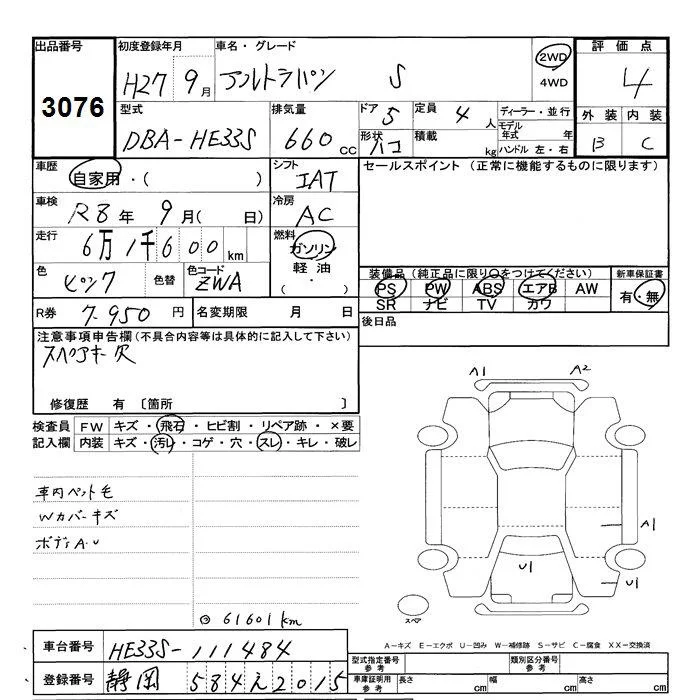 出品番号 初度登録年月 車名・グレード 評価点
3076 H27 9月 アルトラパン S 2WD 4WD 4
型式 排気量 ドア 5 定員 4人 ディーラー・並行 外装 内装
DBA-HE33S 660cc 形状 ハコ 積載 kg モデル年式 年 B C
ハンドル 左・右
車歴 自家用・( ) シフト IAT セールスポイント (正常に機能するものに限ります)
車検 R8年 9月( 日) 冷房 AC
走行 6万1千600km 燃料 ガソリン
軽油
・( )
色 ピンク 色替 色コード ZWA 装備品 (純正品に限り○をつけてください) 新車保証書
PS PW ABS エアB AW 有・無
SR ナビ TV カワ
R券 7,950円 名変期限 月 日 後日品
注意事項申告欄 (不具合内容等は具体的に記入して下さい)
スペアキー欠
修復歴 有 〔箇所 〕
検査員 FW キズ・飛石・ヒビ割・リペア跡・×要
記入欄 内装 キズ・汚レ・コゲ・穴・スレ・キレ・破レ
車内ペット毛
Wカバーキズ
ボディA.U
61601km
A1 A2
A1
U1 U1
スペア
A-キズ E-エクボ U-凹み W-補修跡 S-サビ C-腐食 XX-交換済
車台番号 HE33S-111484
登録番号 静岡 584え2015
型式指定番号 参考 類別区分番号 参考
車庫証明用 参考 長さ cm 幅 cm 高さ cm